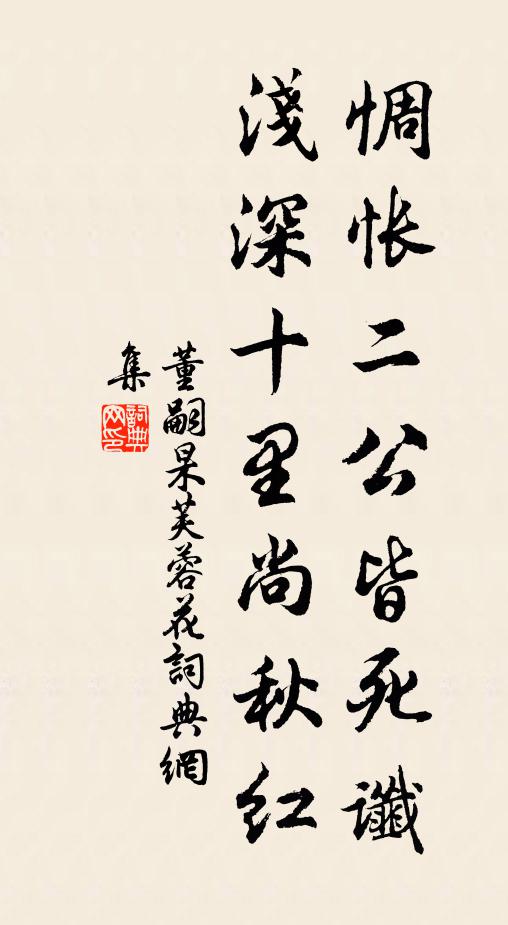 惆悵二公皆死讖
淺深十里尚秋紅
董嗣杲芙蓉花詞典網
集
詞典网印